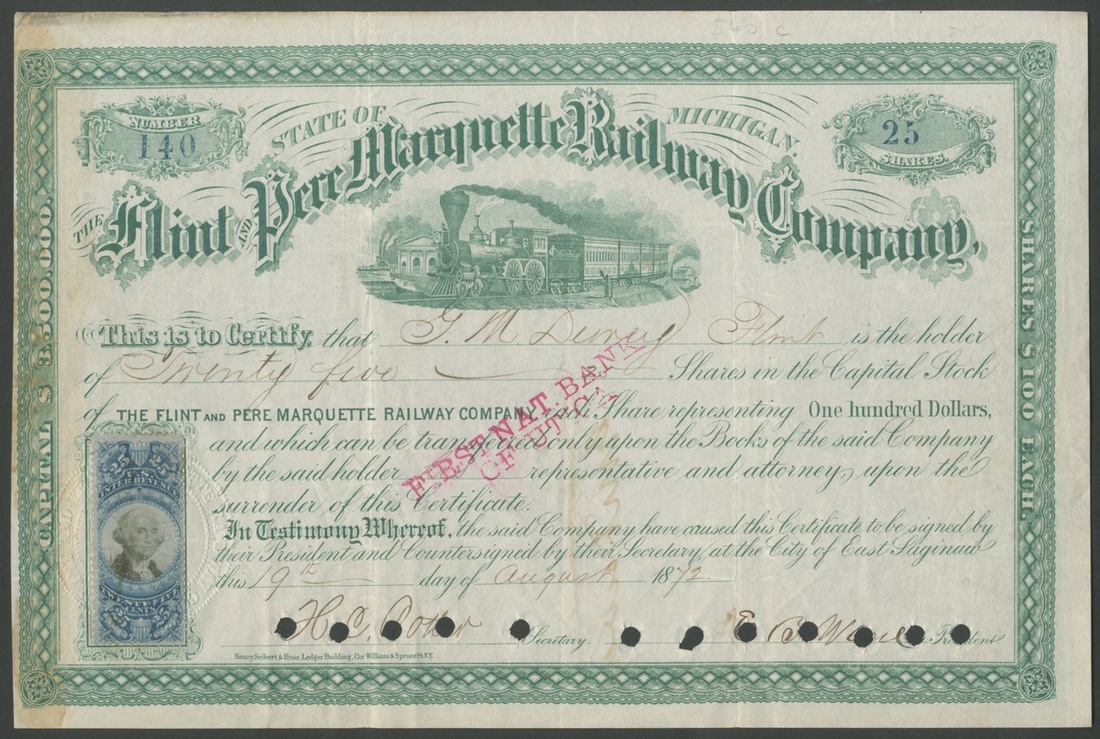 NUMBER
140
STATE OF MICHIGAN.
25
SHARES.
THE Flint AND Pere Marquette Railway Company,
CAPITAL $ 3,500,000.
SHARES $100 EACH,
This is to Certify, that G. M. Dewey Flint is the holder
of Twenty five Shares in the Capital Stock
of THE FLINT AND PERE MARQUETTE RAILWAY COMPANY, each Share representing One hundred Dollars,
and which can be transferred only upon the Books of the said Company
by the said holder representative and attorney, upon the
surrender of this Certificate.
FIRST NAT. BANK
OF UTICA
In Testimony Whereof, the said Company have caused this Certificate to be signed by
their President and Countersigned by their Secretary, at the City of East Saginaw
this 19th day of August 1872
25 25
U.S.
INTER. REVENUE
TWENTY FIVE
CENTS
25 25
H. C. Potter Secretary. E. B. Ward President
Henry Seibert & Bros. Ledger Building, Cor William & Spruce St. N.Y.